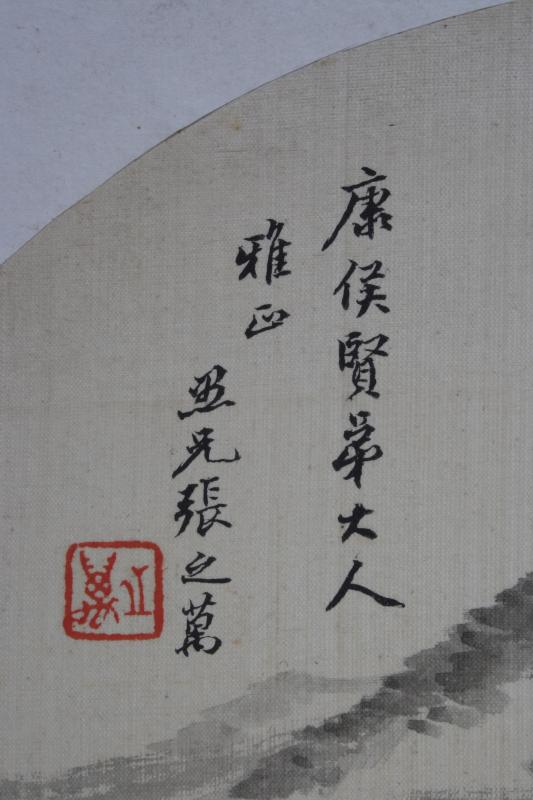 康侯賢弟大人
雅正
愚兄張之萬
之萬